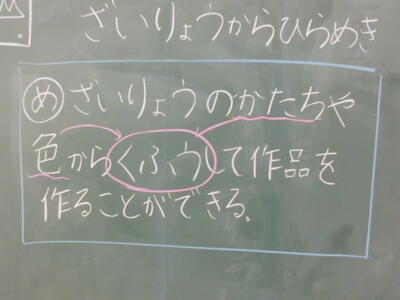 ざいりょうからひらめき
め ざいりょうのかたちや
色からくふうして作品を
作ることができる。